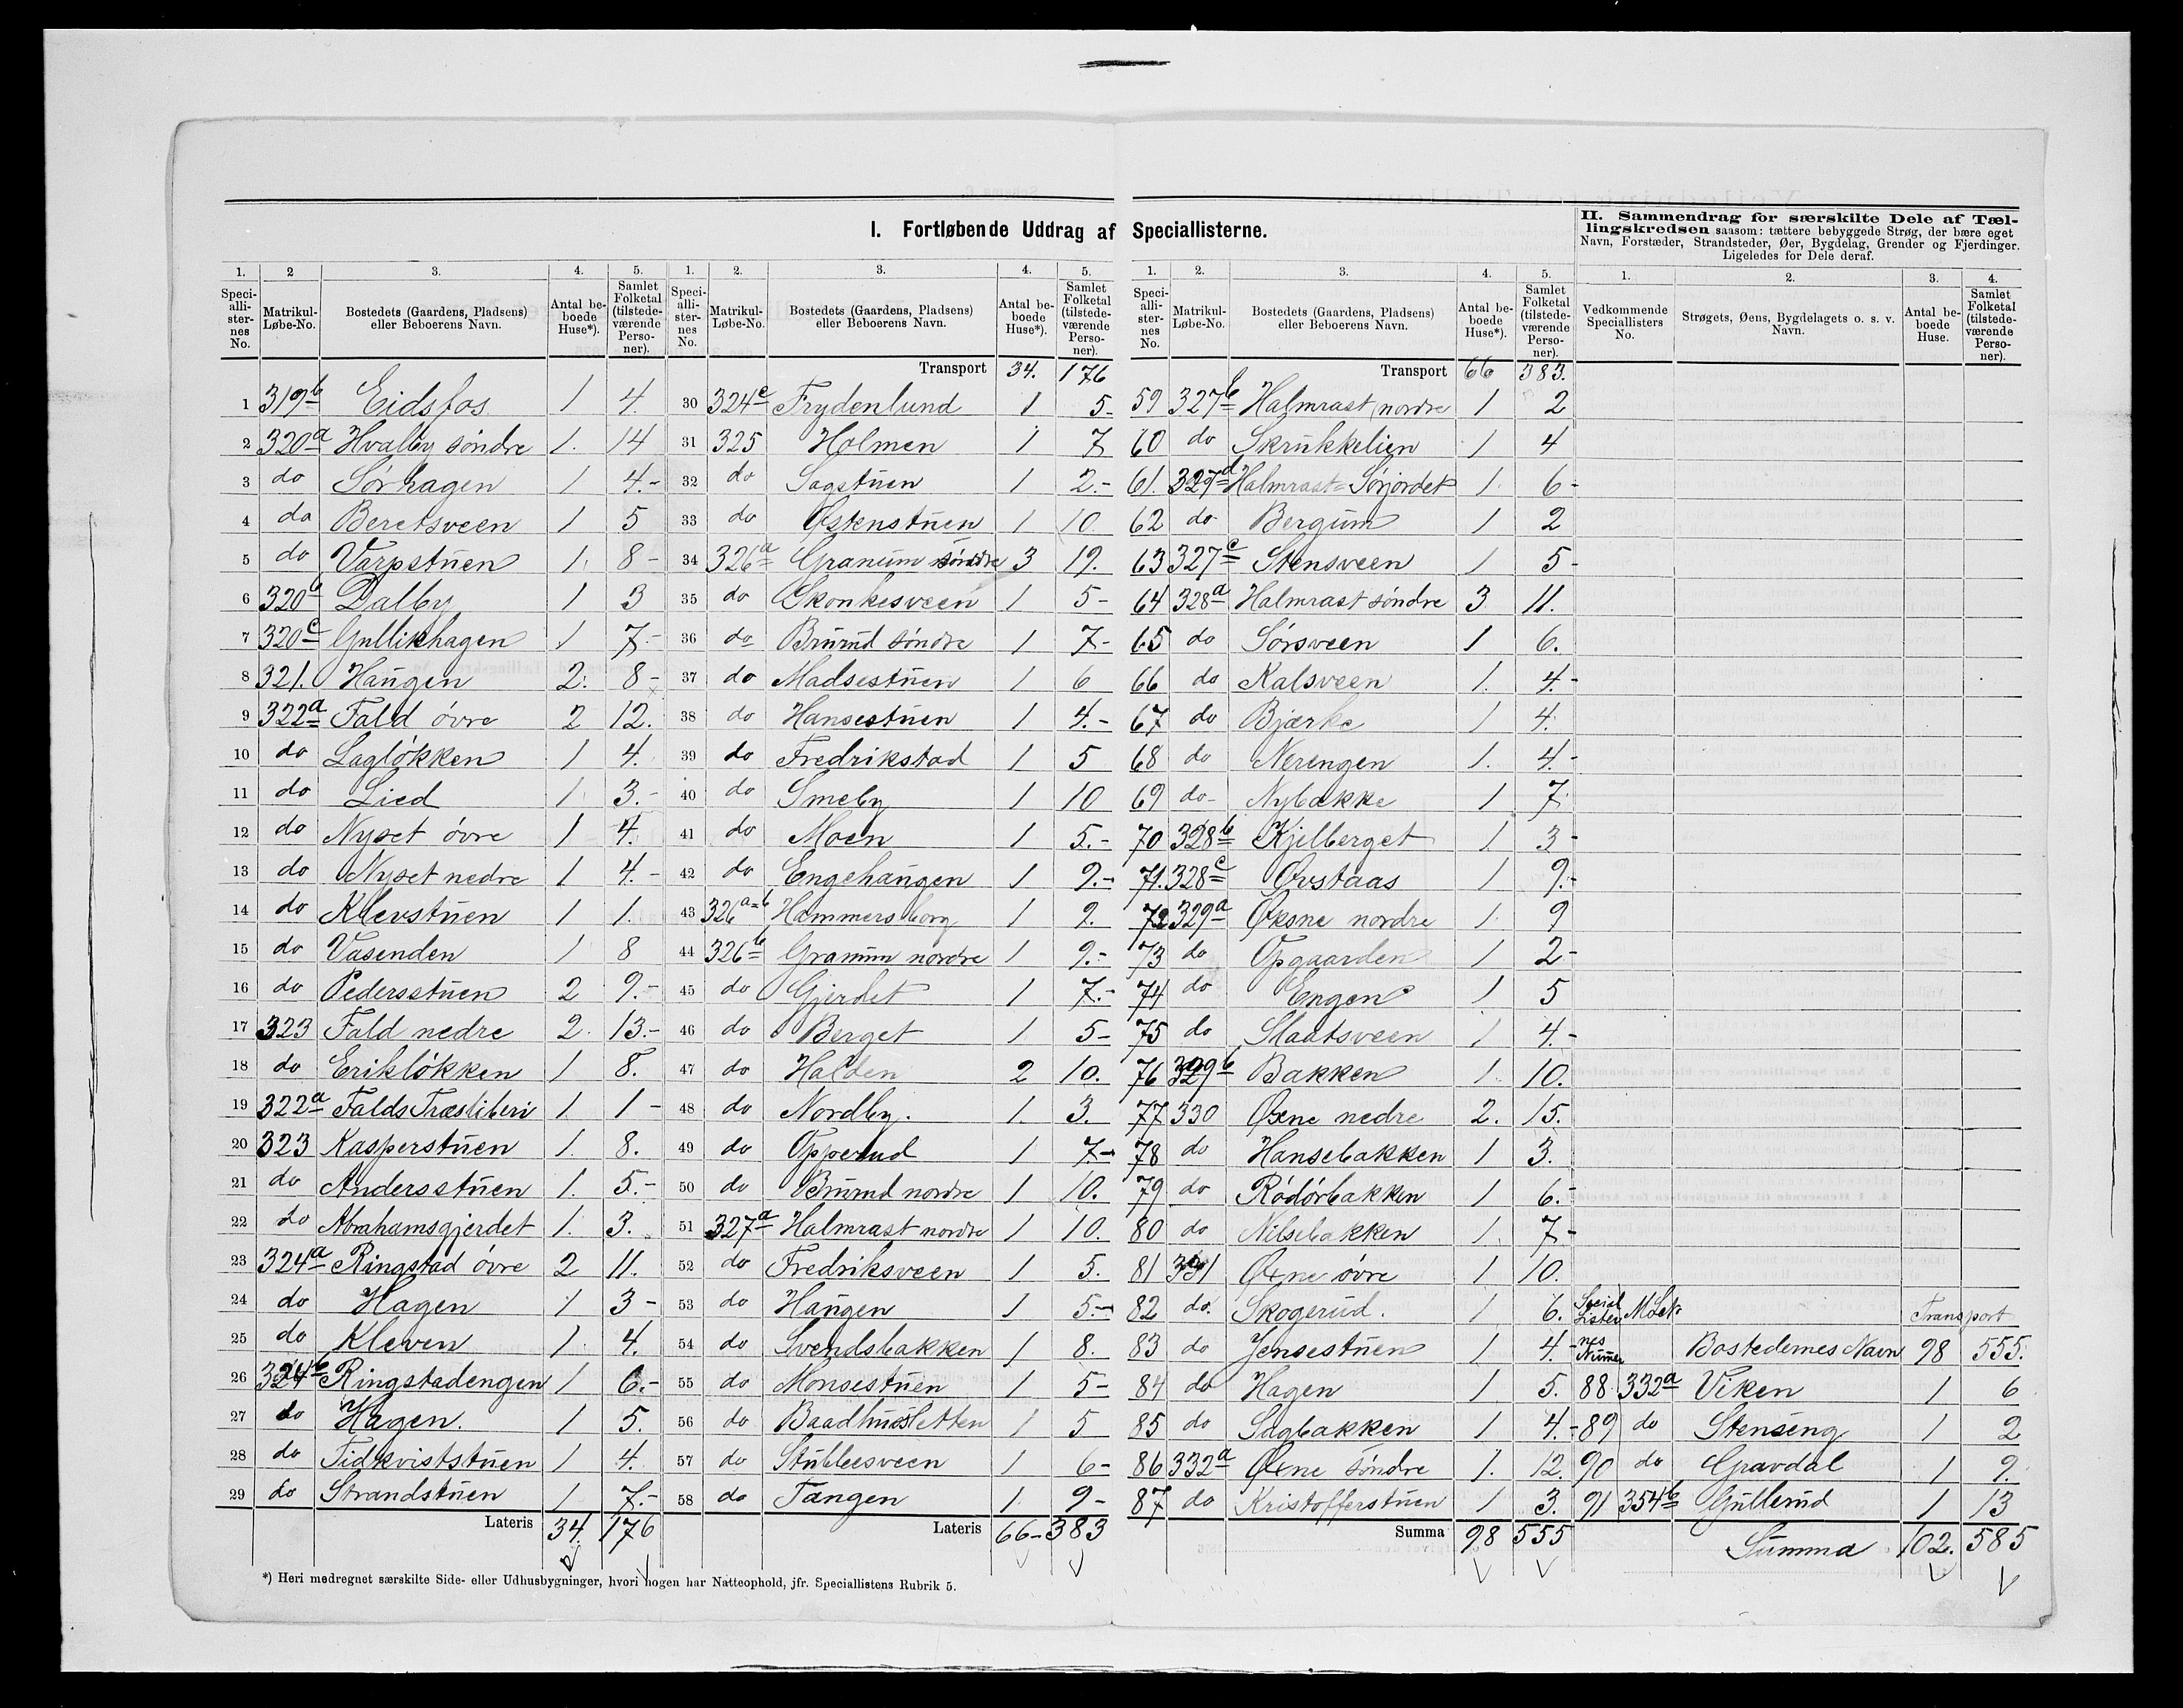 I. Fortløbende Uddrag af Speciallisterne.
II. Sammendrag for særskilte Dele af Tæl-
lingskredsen saasom: tættere bebyggede Strøg, der bære eget
Navn, Forstæder, Strandsteder, Øer, Bygdelag, Grender og Fjerdinger.
Ligeledes for Dele deraf.
1. 2 3. 4. 5.
Speciallisternes No. Matrikul-Løbe-No. Bostedets (Gaardens, Pladsens) eller Beboerens Navn. Antal beboede Huse*). Samlet Folketal (tilstedeværende Personer).
1 319b Eidsfos 1 4.
2 320a Hvalby söndre 1. 14
3 do Sörhagen 1 4.-
4 do Beretsveen 1 5
5 do Varpstuen 1. 8-
6 320b Dalby 1 3
7 320c Gullikhagen 1 7.-
8 321. Haugen 2. 8-
9 322a Fald övre 2 12.
10 do Lagløkken 1 4.
11 do Lied 1 3.-
12 do Nyset övre 1 4.
13 do Nyset nedre 1 4.-
14 do Klevstuen 1 1.
15 do Vasenden 1 8
16 do Pedersstuen 2 9.-
17 323 Fald nedre 2. 13.-
18 do Erikløkken 1 8.
19 322a Falds Træsliberi 1. 1-
20 323 Kasperstuen 1. 8.
21 do Andersstuen 1. 5.-
22 do Abrahamsgjerdet 1. 3.
23 324a Ringstad övre 2 11.
24 do Hagen 1 3-
25 do Kleven 1. 4.
26 324b Ringstadengen 1 6.-
27 do Hagen. 1 5.
28 do Tidkviststuen 1 4.
29 do Strandstuen 1 7.-
Lateris 34. 176
1. 2. 3. 4. 5.
Speciallisternes No. Matrikul-Løbe-No. Bostedets (Gaardens, Pladsens) eller Beboerens Navn. Antal beboede Huse*). Samlet Folketal (tilstedeværende Personer).
Transport 34. 176
30 324c Frydenlund 1 5-
31 325 Holmen 1 7
32 do Sagstuen 1 2.-
33 do Østenstuen 1 10.
34 326a Granum söndre 3 19.
35 do Skonkesveen 1 5-
36 do Brurud söndre 1 7-
37 do Madsestuen 1 6
38 do Hansestuen 1 4.-
39 do Fredrikstad 1 5
40 do Smeby 1 10
41 do Moen 1 5.-
42 do Engehaugen 1 9.-
43 326a=b Hammersborg 1 9.
44 326b Granum nordre 1 9.-
45 do Gjerdet 1 7.-
46 do Berget 1 5-
47 do Halden 2 10.
48 do Nordby. 1. 3.
49 do Opperud 1 7.-
50 do Brurud nordre 1 10.
51 327a Halmrast nordre 1 10.
52 do Fredriksveen 1 5.
53 do Haugen 1 5.-
54 do Svendsbakken 1 8.
55 do Monsestuen 1 5-
56 do Baadhussletten 1 5
57 do Stubbesveen 1 6-
58 do Tangen 1. 9-
Lateris 66- 383
1. 2. 3. 4. 5.
Speciallisternes No. Matrikul-Løbe-No. Bostedets (Gaardens, Pladsens) eller Beboerens Navn. Antal beboede Huse*). Samlet Folketal (tilstedeværende Personer).
Transport 66 383.
59 327b Halmrast nordre 1 2
60 do Skrukkelien 1 4
61. 327d Halmrast=Sörjordet 1. 6-
62 do Bergum 1 2
63 327c Stensveen 1 5-
64 328a Halmrast söndre 3 11.
65 do Sörsveen 1 6.
66 do Kalsveen 1. 4.-
67 do Bjærke 1 4.
68 do Nerengen 1. 4.-
69 do Nybakke 1 7.
70 328b Kjelberget 1. 3-
71. 328c Øvstaas 1 9.-
72 329a Øxne nordre 1. 9
73 do Opgaarden 1 2-
74 do Engen 1 5
75 do Slaatsveen 1 4.-
76 329b Bakken 1. 10.
77 330 Øxne nedre 2. 15.
78 do Hansebakken 1 3.
79 do Rödörbakken 1 6.-
80 do Nilsebakken 1. 7-
81 331 Øxne övre 1 10.
82 do. Skogerud. 1 6.
83 do Jensestuen 1 4.-
84 do Hagen 1 5.
85 do Sagbakken 1 4.-
86 332a Øxne söndre 1. 12.
87 do Kristofferstuen 1 3.
Summa 98 555
1. 2. 3. 4.
Vedkommende Speciallisters No. Strøgets, Øens, Bygdelagets o. s. v. Navn. Antal beboede Huse. Samlet Folketal (tilstedeværende Personer).
Transport
Bostedernes Navn 98 555.
88 332a Viken 1 6
89 do Stenseng 1 2
90 do Gravdal 1 9.
91 354b Gullerud 1 13
Summa 102. 585
*) Heri medregnet særskilte Side- eller Udhusbygninger, hvori nogen har Natteophold, jfr. Speciallistens Rubrik 5.